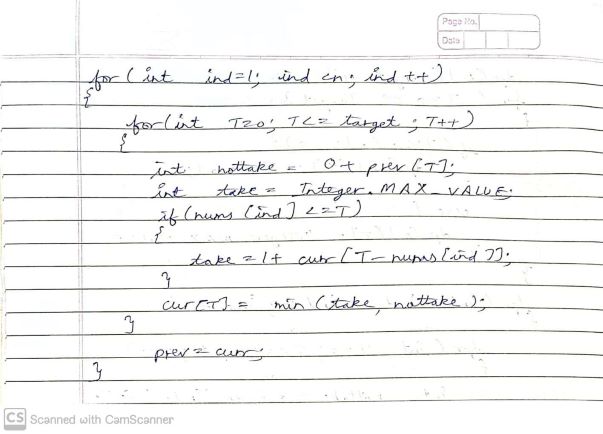 Page No.
Date
for ( int ind=1; ind <n; ind ++)
{
for (int T=0; T<= target ; T++)
{
int nottake = 0+ prev [T];
int take = Integer. MAX_VALUE;
if (nums [ind] <=T)
{
take =1+ curr [T- nums[ind]];
}
cur[T] = min (take, nottake );
}
prev = curr;
}
CS Scanned with CamScanner